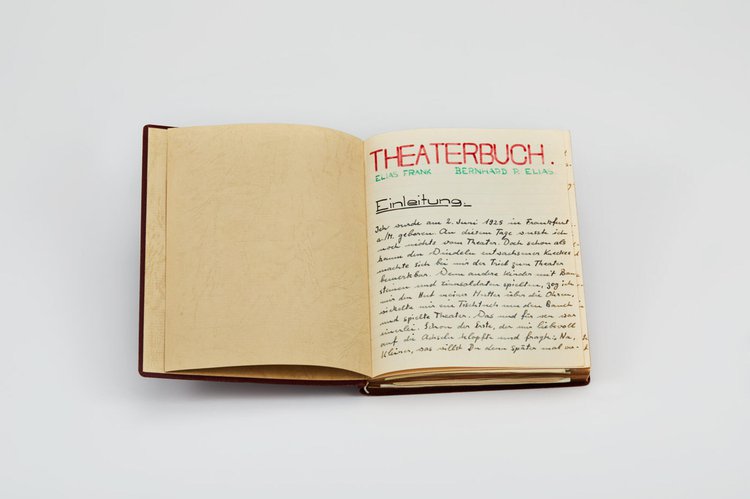 THEATERBUCH.
ELIAS FRANK BERNHARD P. ELIAS.
Einleitung.
Ich wurde am 2. Juni 1925 in Frankfurt
a/M. geboren. An diesem Tage wusste ich
noch nichts vom Theater. Doch schon als
kaum den Windeln entwachsener Knabe
machte sich bei mir der Trieb zum Theater
bemerkbar. Denn andere Kinder mit Bau-
steinen und Zinnsoldaten spielten, zog ich
mir den Hut meiner Mutter über die Ohren,
wickelte mir ein Tischtuch um den Bauch
und spielte Theater. Was und für wen war
einerlei. Schon der Erste, der mir liebevoll
auf die Achseln klopfte und fragte: Na,
Kleiner, was willst Du denn später mal we-